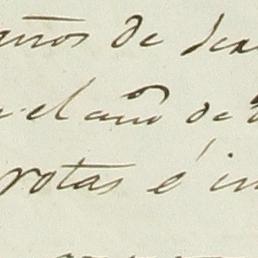 años de
el año de
rotas é in